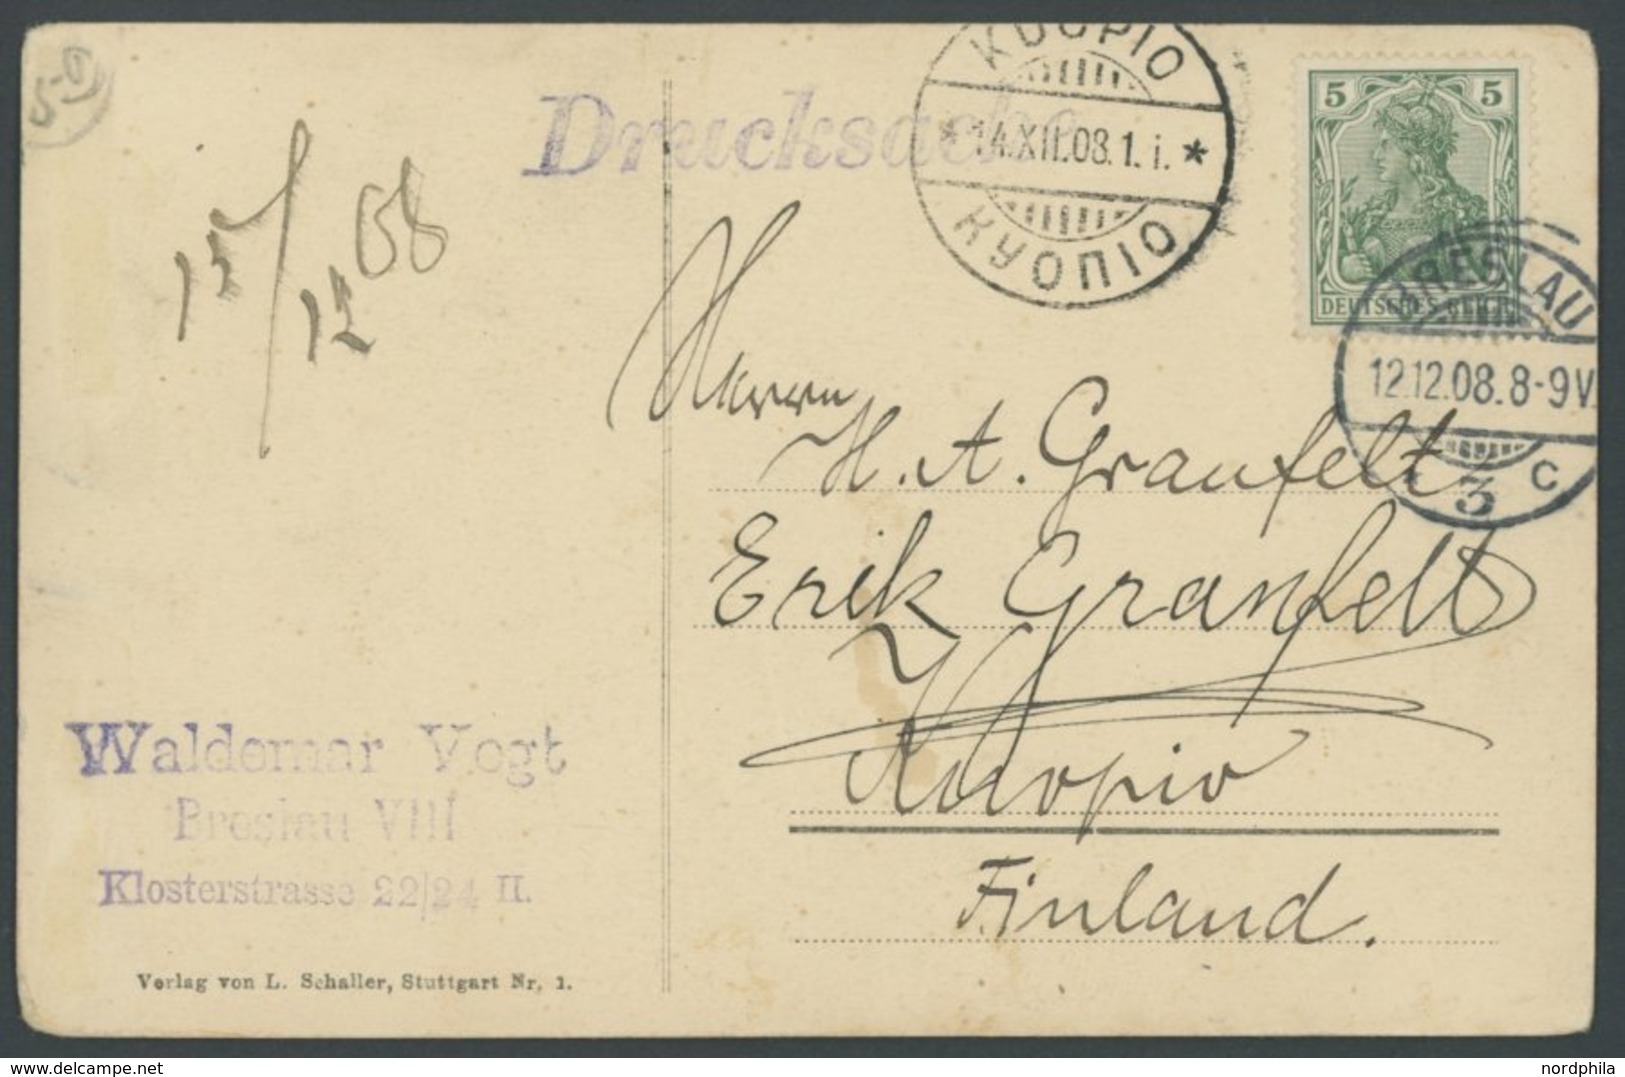 Drucksache
KUOPIO
* 14.XII.08.1.i. *
КУОПІО
5 5
DEUTSCHES REICH
BRESLAU
12.12.08.8-9V.
* 3 c
15/12 08
Herrn
H. A. Granfelt
Erik Granfelt
Kuopio
Finland.
Waldemar Vogt
Breslau VIII
Klosterstrasse 22/24 II.
Verlag von L. Schaller, Stuttgart Nr. 1.
delcampe.net
nordphila